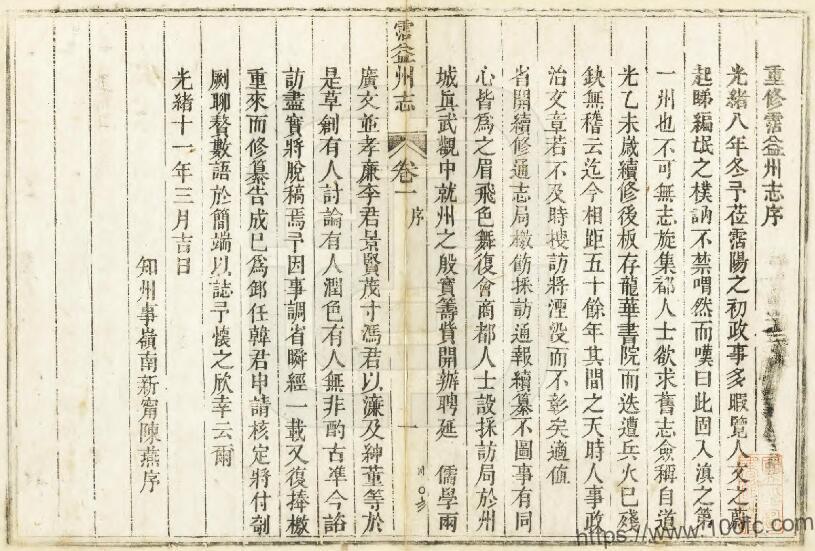 重修霑益州志序
光緒八年冬予莅霑陽之初政事多暇覽人文之蔚
起睇編氓之樸訥不禁喟然而嘆曰此固入滇之第
一州也不可無志旋集都人士欲求舊志僉稱自道
光乙未歲續修後板存龍華書院而迭遭兵火已殘
缺無稽云迄今相距五十餘年其間之天時人事政
治文章若不及時搜訪將湮沒而不彰矣適值
省開續修通志局檄飭採訪通報續纂不圖事有同
心皆為之眉飛色舞復會商都人士設採訪局於州
城真武觀中就州之殷實籌貲開辦聘延 儒學兩
霑益州志 卷一 序 一
廣文並孝廉李君景賢茂才馮君以濂及紳董等於
是草創有人討論有人潤色有人無非酌古準今諮
訪盡實將脫稿焉予因事調省瞬經一載又復捧檄
重來而修纂告成已為卸任韓君申請核定將付剞
劂聊贅數語於簡端以誌予懷之欣幸云爾
光緒十一年三月吉日
知州事嶺南新甯陳燕序
https://www.100tc.com